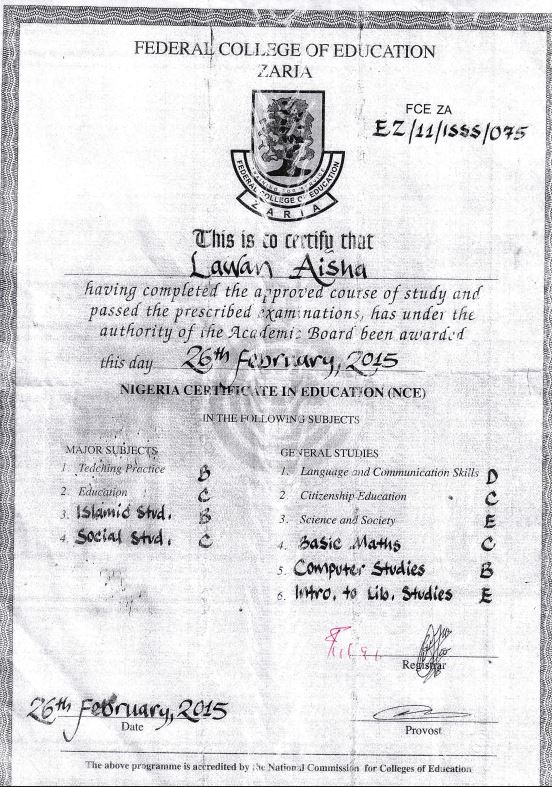 FEDERAL COLLEGE OF EDUCATION
ZARIA
FCE ZA
EZ/11/ISSS/075
FEDERAL COLLEGE OF EDUCATION
ZARIA
This is to certify that
Lawan Aisha
having completed the approved course of study and
passed the prescribed examinations, has under the
authority of the Academic Board been awarded
this day 26th February, 2015
NIGERIA CERTIFICATE IN EDUCATION (NCE)
IN THE FOLLOWING SUBJECTS
MAJOR SUBJECTS
1. Teaching Practice B
2. Education C
3. Islamic Stud. B
4. Social Stud. C
GENERAL STUDIES
1. Language and Communication Skills D
2 Citizenship Education C
3. Science and Society E
4. Basic Maths C
5. Computer Studies B
6. Intro. to Lib. Studies E
Registrar
26th February, 2015
Date
Provost
The above programme is accredited by the National Commission for Colleges of Education